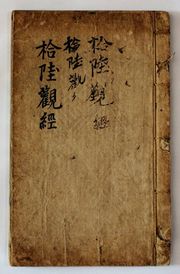 拾陸觀經
拾陸觀
拾陸觀經